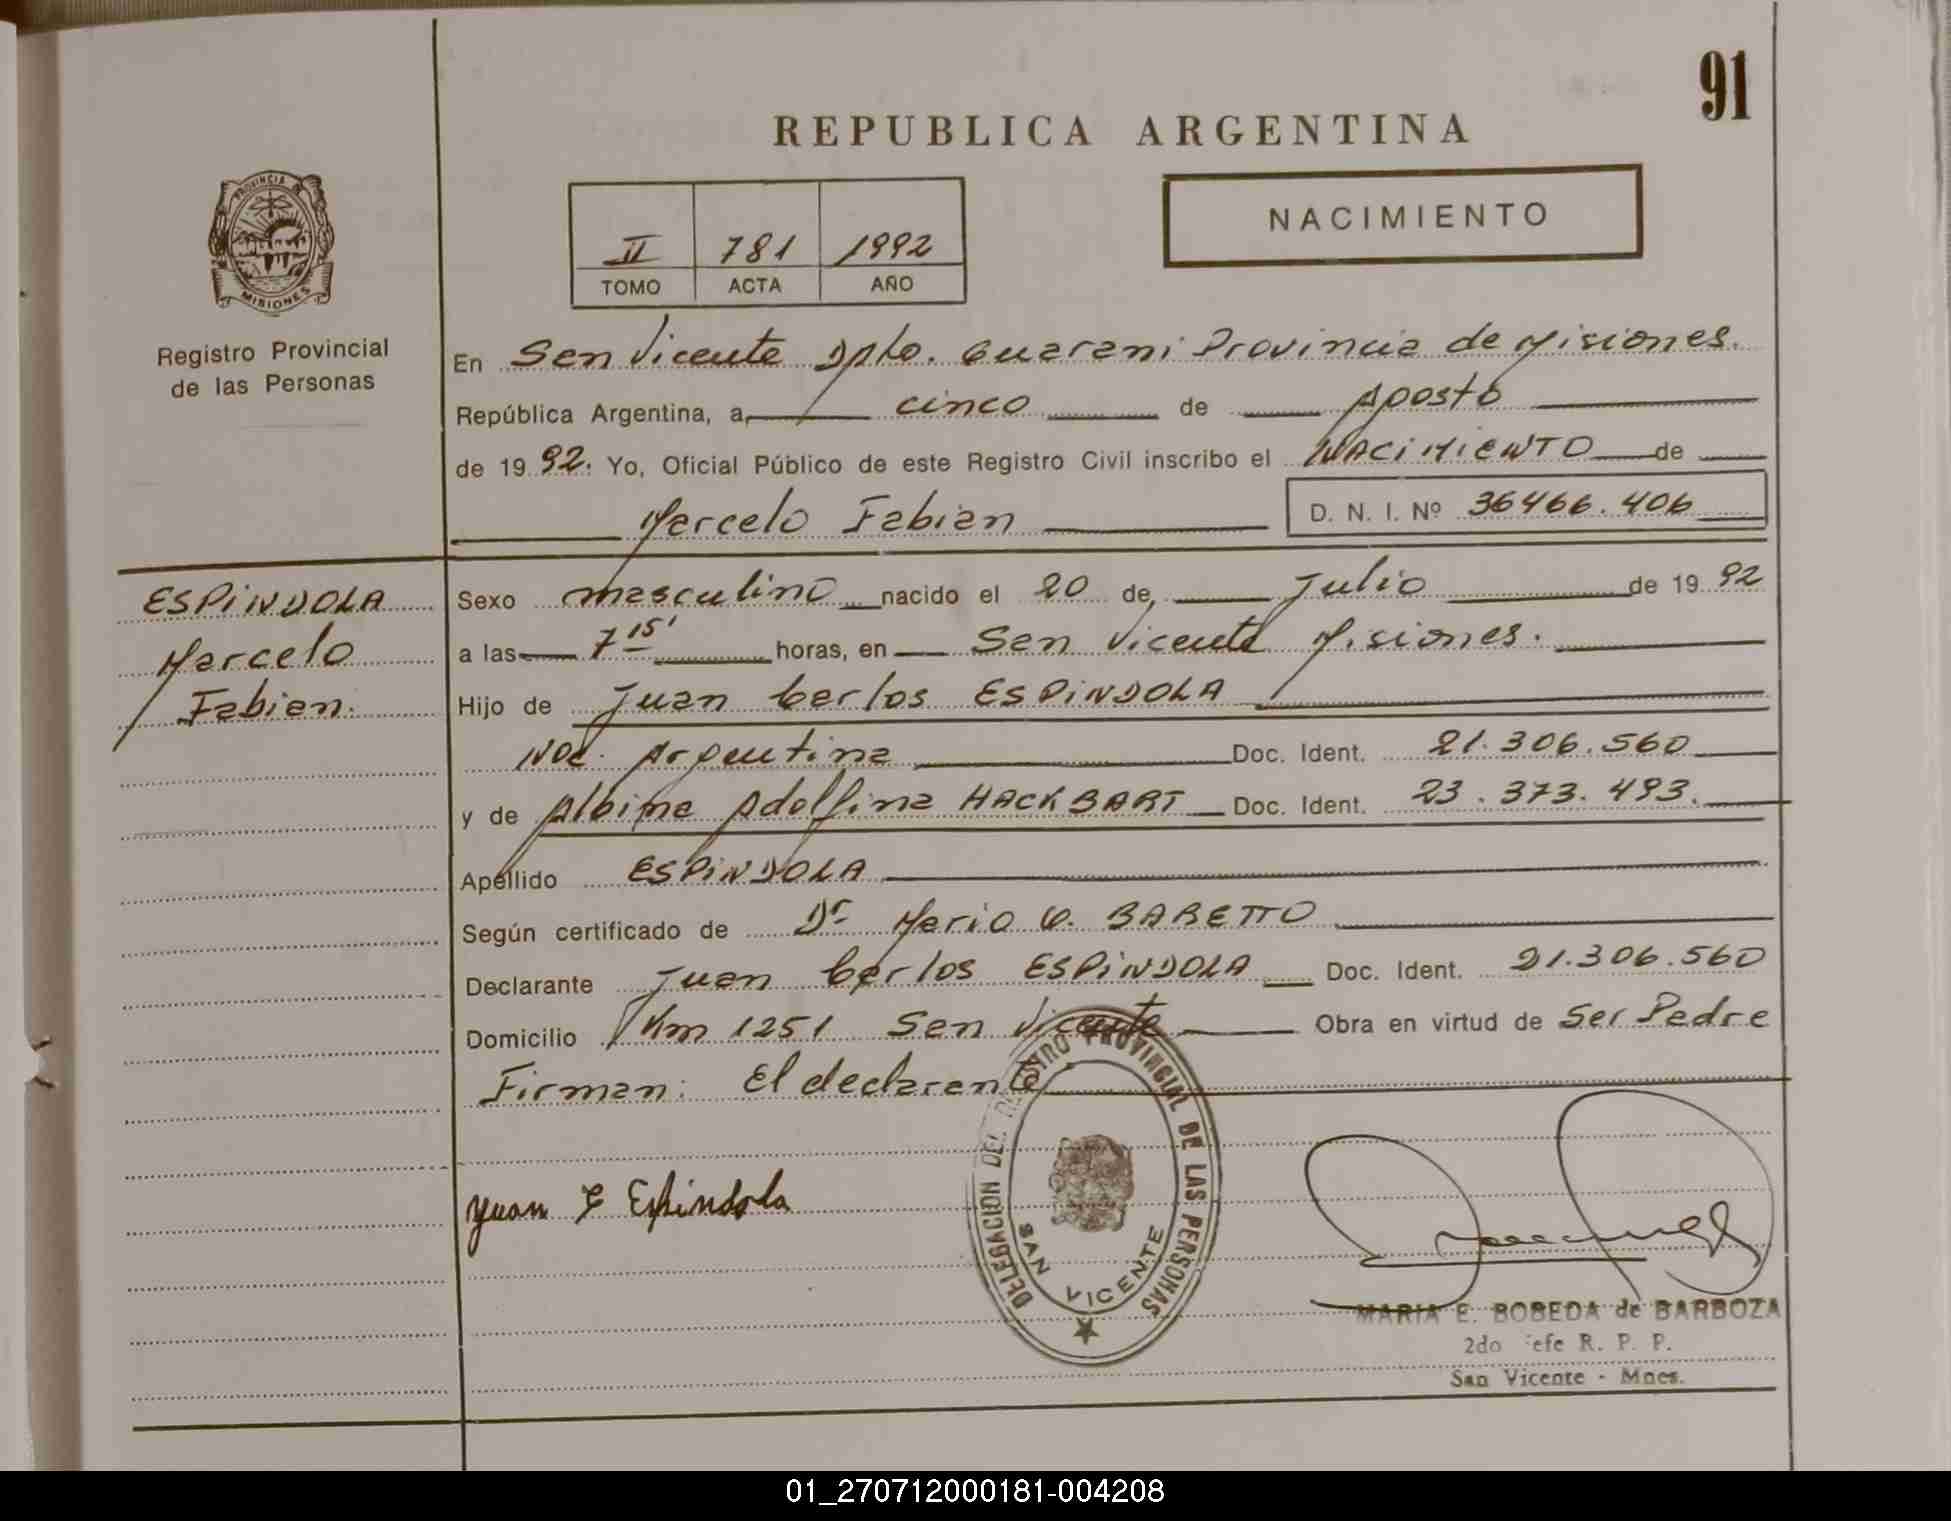 91
REPUBLICA ARGENTINA
NACIMIENTO
II 781 1992
TOMO ACTA AÑO
PROVINCIA DE
MISIONES
Registro Provincial
de las Personas
En San Vicente Dpto. Guarani Provincia de Misiones.
República Argentina, a cinco de Agosto
de 1992. Yo, Oficial Público de este Registro Civil inscribo el NACIMIENTO de
Marcelo Fabian D. N. I. Nº 36466.406
ESPINDOLA
Marcelo
Fabian.
Sexo masculino nacido el 20 de Julio de 1992
a las 7 15' horas, en San Vicente Misiones.
Hijo de Juan Carlos ESPINDOLA
Nac. Argentina Doc. Ident. 21.306.560
y de Albina Adolfina HACKBART Doc. Ident. 23.373.493.
Apellido ESPINDOLA
Según certificado de Dr Mario G. BARETTO
Declarante Juan Carlos ESPINDOLA Doc. Ident. 21.306.560
Domicilio Km 1251 San Vicente Obra en virtud de Ser Padre
Firman: El declarante
Juan C Espindola
DELEGACION DEL REGISTRO PROVINCIAL DE LAS PERSONAS
SAN VICENTE
MARIA E. BOBEDA de BARBOZA
2do Jefe R. P. P.
San Vicente - Mnes.
01_270712000181-004208